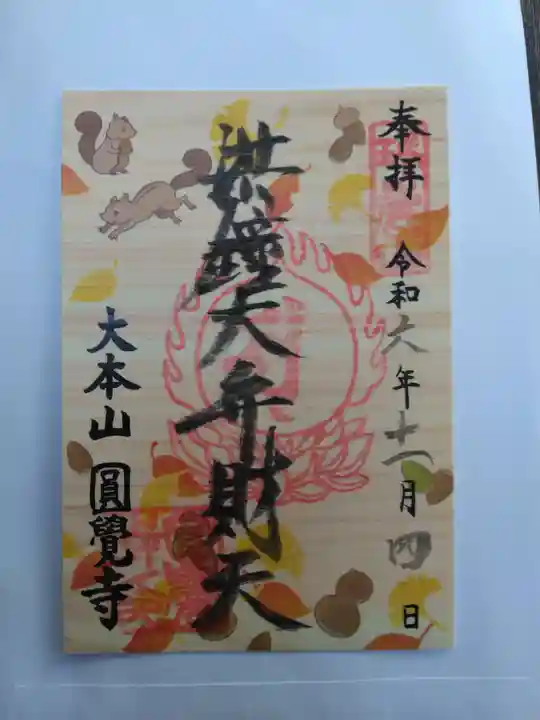 奉拝
令和六年十一月四日
洪鐘大弁財天
大本山圓覺寺